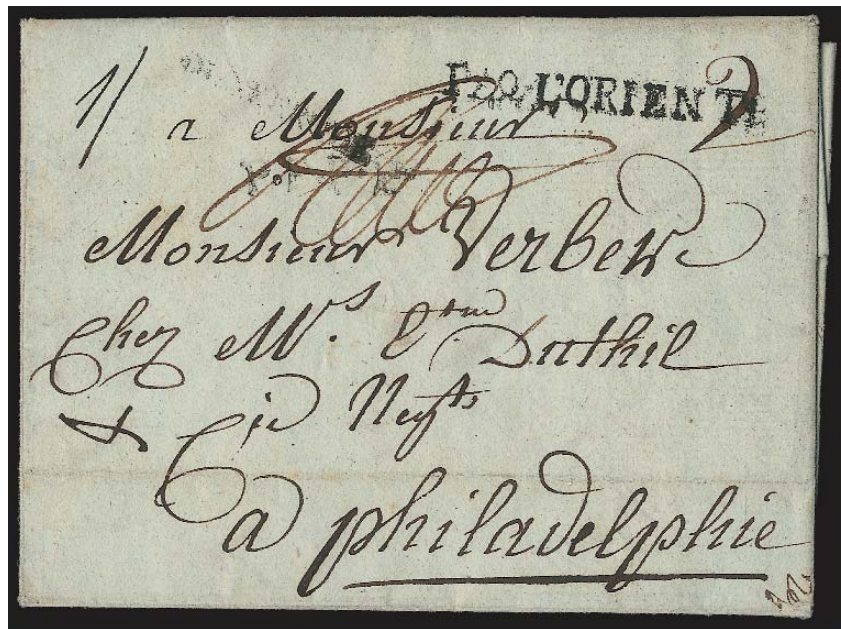 PAQ L'ORIENT
1/
a Monsieur
2
Monsieur Verber
Chez Mrs. Eme Duthil
& Cie Negts
a philadelphie